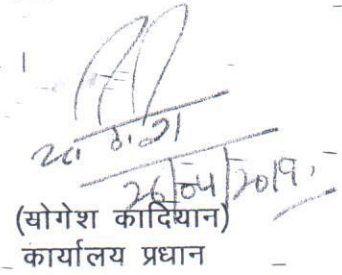 26/04/2019
(योगेश कादियान)
कार्यालय प्रधान